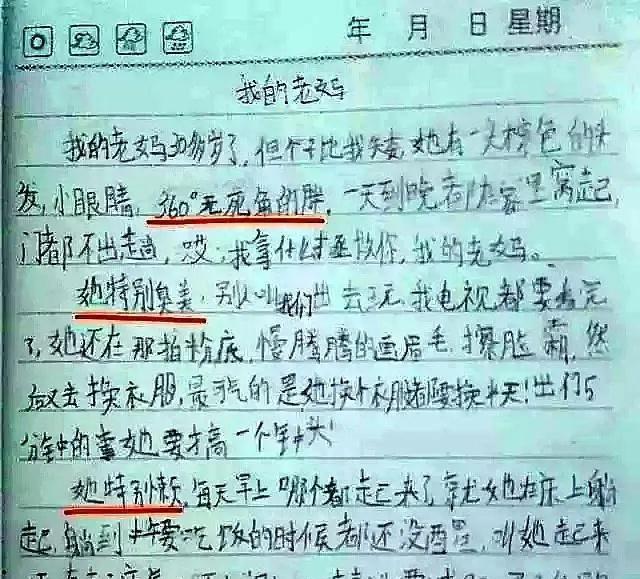 年 月 日 星期
我的老妈
我的老妈30多岁了,但个子比我矮,她有一头棕色的头
发,小眼睛,360°无死角的胖,一天到晚都在家里窝起,
门都不出一趟,哎,我拿什么拯救你,我的老妈。
她特别臭美,别人叫我们出去玩,我电视都要看完
了,她还在那拍粉底,慢腾腾的画眉毛,擦脸霜,然
后又去换衣服,最气的是她换个衣服都要换半天!出门5
分钟的事她要才高一个钟头!
她特别懒,每天早上哪个都起来了,就她在床上躺
起,躺到中午要吃饭的时候都还没醒,叫她起来